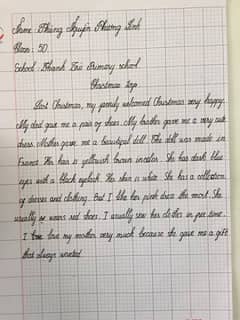 Name: Phùng Nguyễn Phương Linh
Class: 5D
School: Khánh Trù Primary school
Christmas toys
Last Christmas, my family welcomed Christmas very happy.
My dad gave me a pair of shoes. My brother gave me a very cute
dress. Mother gave me a beautiful doll. The doll was made in
France. Her hair is yellowish brown incolor. She has dark blue
eyes with a black eyelash. Her skin is white. She has a collection
of dresses and clothing. But I like her pink dress the most. She
usually wears red shoes. I usually sew her clothes in free time.
I love my mother very much because she gave me a gift
that always wanted